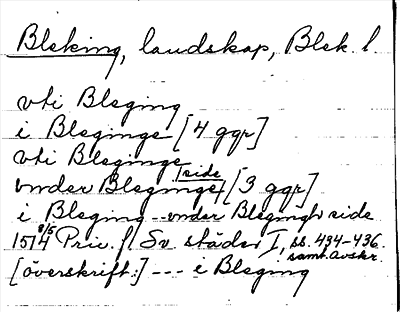 Bleking, landskap, Blek. l.
vti Bleging
i Bleginge [4 ggr]
vti Bleginge
vnder Bleginge/side/ [3 ggr]
i Bleging --- vnder Blegingh side
15 8/5 74 Priv. f. Sv. städer I, ss. 434-436.
samt. Avskr.
[överskrift:] --- i Bleging